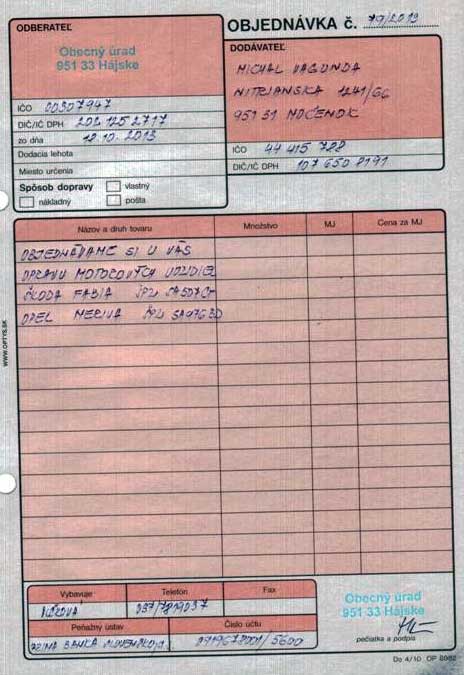 ODBERATEĽ
Obecný úrad
951 33 Hájske
IČO 00307947
DIČ/IČ DPH 202 125 2717
zo dňa 12.10.2013
Dodacia lehota
Miesto určenia
Spôsob dopravy vlastný
nákladný pošta
OBJEDNÁVKA č. 79/2013
DODÁVATEĽ
MICHAL VAGUNDA
NITRIANSKA 1241/66
951 31 MOČENOK
IČO 44 415 728
DIČ/IČ DPH 107 650 8191
Názov a druh tovaru Množstvo MJ Cena za MJ
OBJEDNÁVAME SI U VÁS
OPRAVU MOTOROVÝCH VOZIDIEL
ŠKODA FABIA ŠPZ
OPEL MERIVA ŠPZ
WWW.OPTYS.SK
Vybavuje Telefón Fax
037/7819037
Peňažný ústav Číslo účtu
BANKA SLOVENSKO /5600
Obecný úrad
951 33 Hájske
pečiatka a podpis
Do 4/10 OP